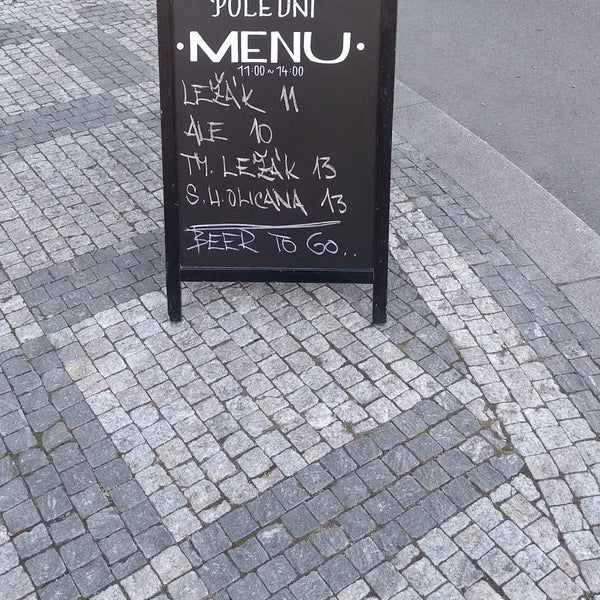 POLEDNÍ
• MENU •
11:00 ~ 14:00
LEŽÁK 11
ALE 10
TM. LEŽÁK 13
S.H. OLICANA 13
BEER TO GO...